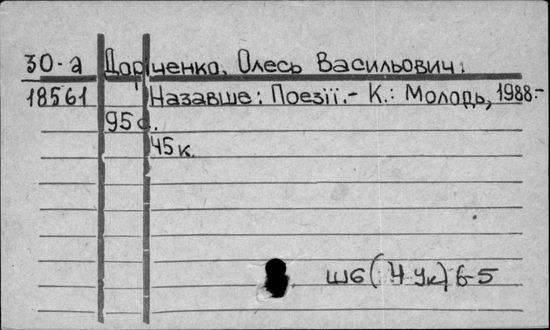 30-а Доріченко, Олесь Васильович.
18561 Назавше: Поезії.- К.: Молодь, 1988.-
95 с.
45 к.
Ш6(4 Ук)6-5